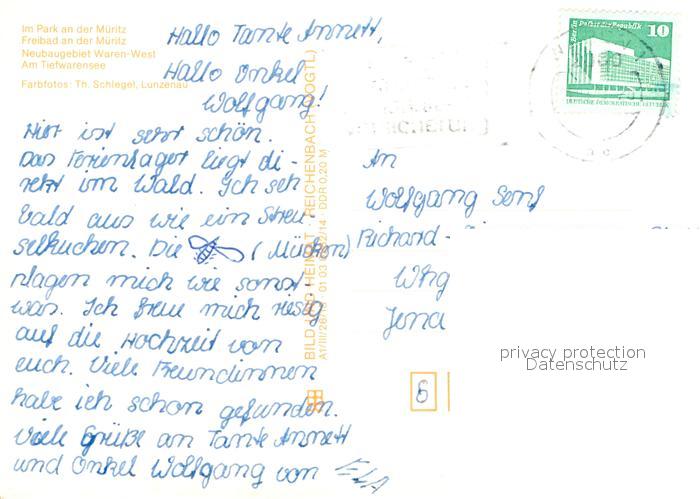 Im Park an der Müritz
Freibad an der Müritz
Neubaugebiet Waren-West
Am Tiefwarensee
Farbfotos: Th. Schlegel, Lunzenau
Hallo Tante Annett,
Hallo Onkel
Wolfgang!
Hier ist sehr schön.
Das Ferienlager liegt di-
rekt im Wald. Ich seh
bald aus wie ein Streu-
selkuchen. Die (Mücken)
plagen mich wie sonst
was. Ich freue mich riesig
auf die Hochzeit von
euch. Viele Freundinnen
habe ich schon gefunden.
Viele Grüße an Tante Annett
und Onkel Wolfgang von ELA
BILD UND HEIMAT REICHENBACH (VOGTL)
DDR 0,20 M
10
Berlin, Palast der Republik
An
Wolfgang Senf
Richard-
Whg
Jena
6
privacy protection
Datenschutz